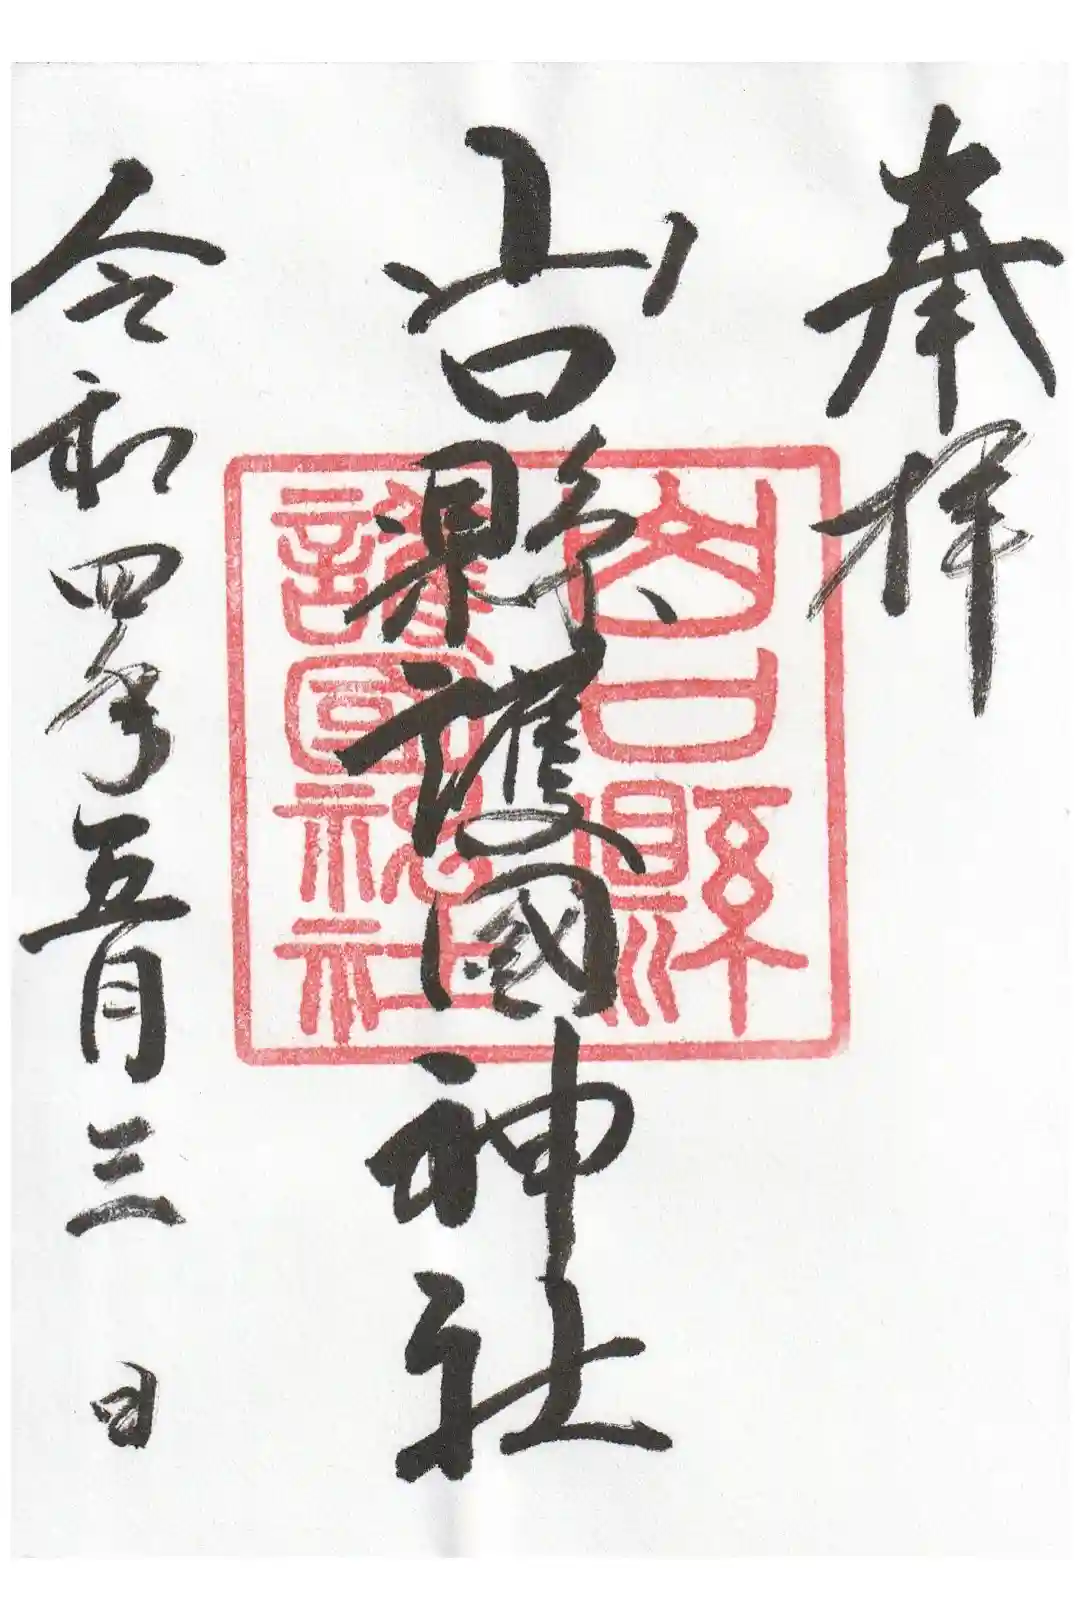 奉拝
山口縣護國神社
山口縣
護國神社
令和四年五月三日